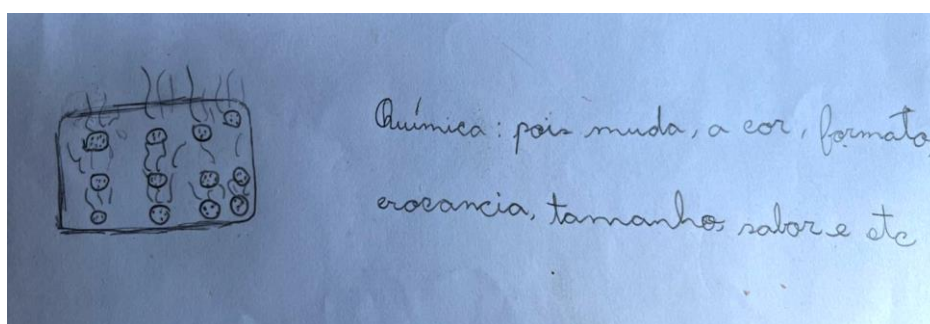 Química: pois muda, a cor, formato,
crocancia, tamanho, sabor e etc